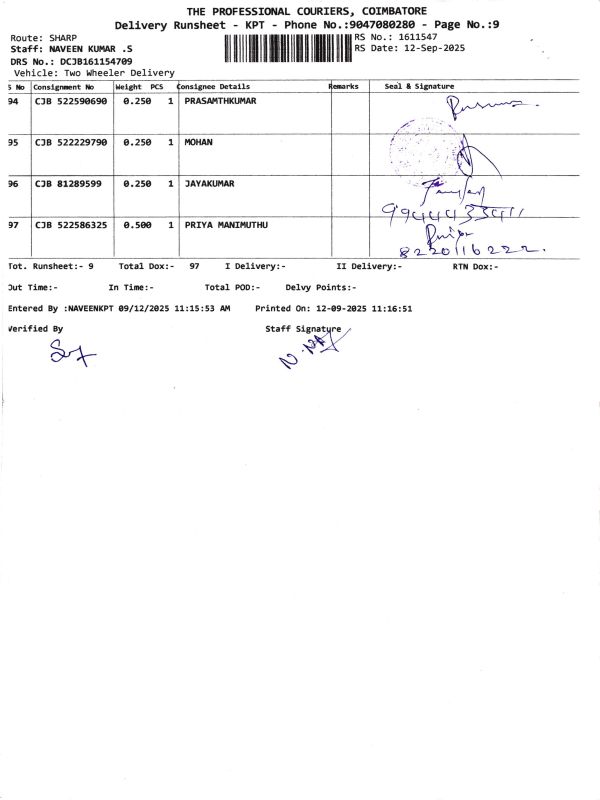 THE PROFESSIONAL COURIERS, COIMBATORE
Delivery Runsheet - KPT - Phone No.:9047080280 - Page No.:9
Route: SHARP
RS No.: 1611547
Staff: NAVEEN KUMAR .S
RS Date: 12-Sep-2025
DRS No.: DCJB161154709
Vehicle: Two Wheeler Delivery
S No Consignment No Weight PCS Consignee Details Remarks Seal & Signature
94 CJB 522590690 0.250 1 PRASAMTHKUMAR
95 CJB 522229790 0.250 1 MOHAN
96 CJB 81289599 0.250 1 JAYAKUMAR
97 CJB 522586325 0.500 1 PRIYA MANIMUTHU
8220116222.
Tot. Runsheet:- 9 Total Dox:- 97 I Delivery:- II Delivery:- RTN Dox:-
Out Time:- In Time:- Total POD:- Delvy Points:-
Entered By :NAVEENKPT 09/12/2025 11:15:53 AM Printed On: 12-09-2025 11:16:51
Verified By Staff Signature